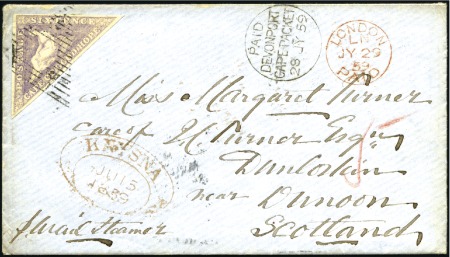 SIXPENCE
PAID
DEVONPORT
CAPE-PACKET
28 JY 59
LONDON
JY 29
59
PAID
Miss Margaret Turner
care of J.C. Turner Esqre
Dunloskin
near
Dunoon
Scotland
KNYSNA
JU 15
1859
p Mail Steamer